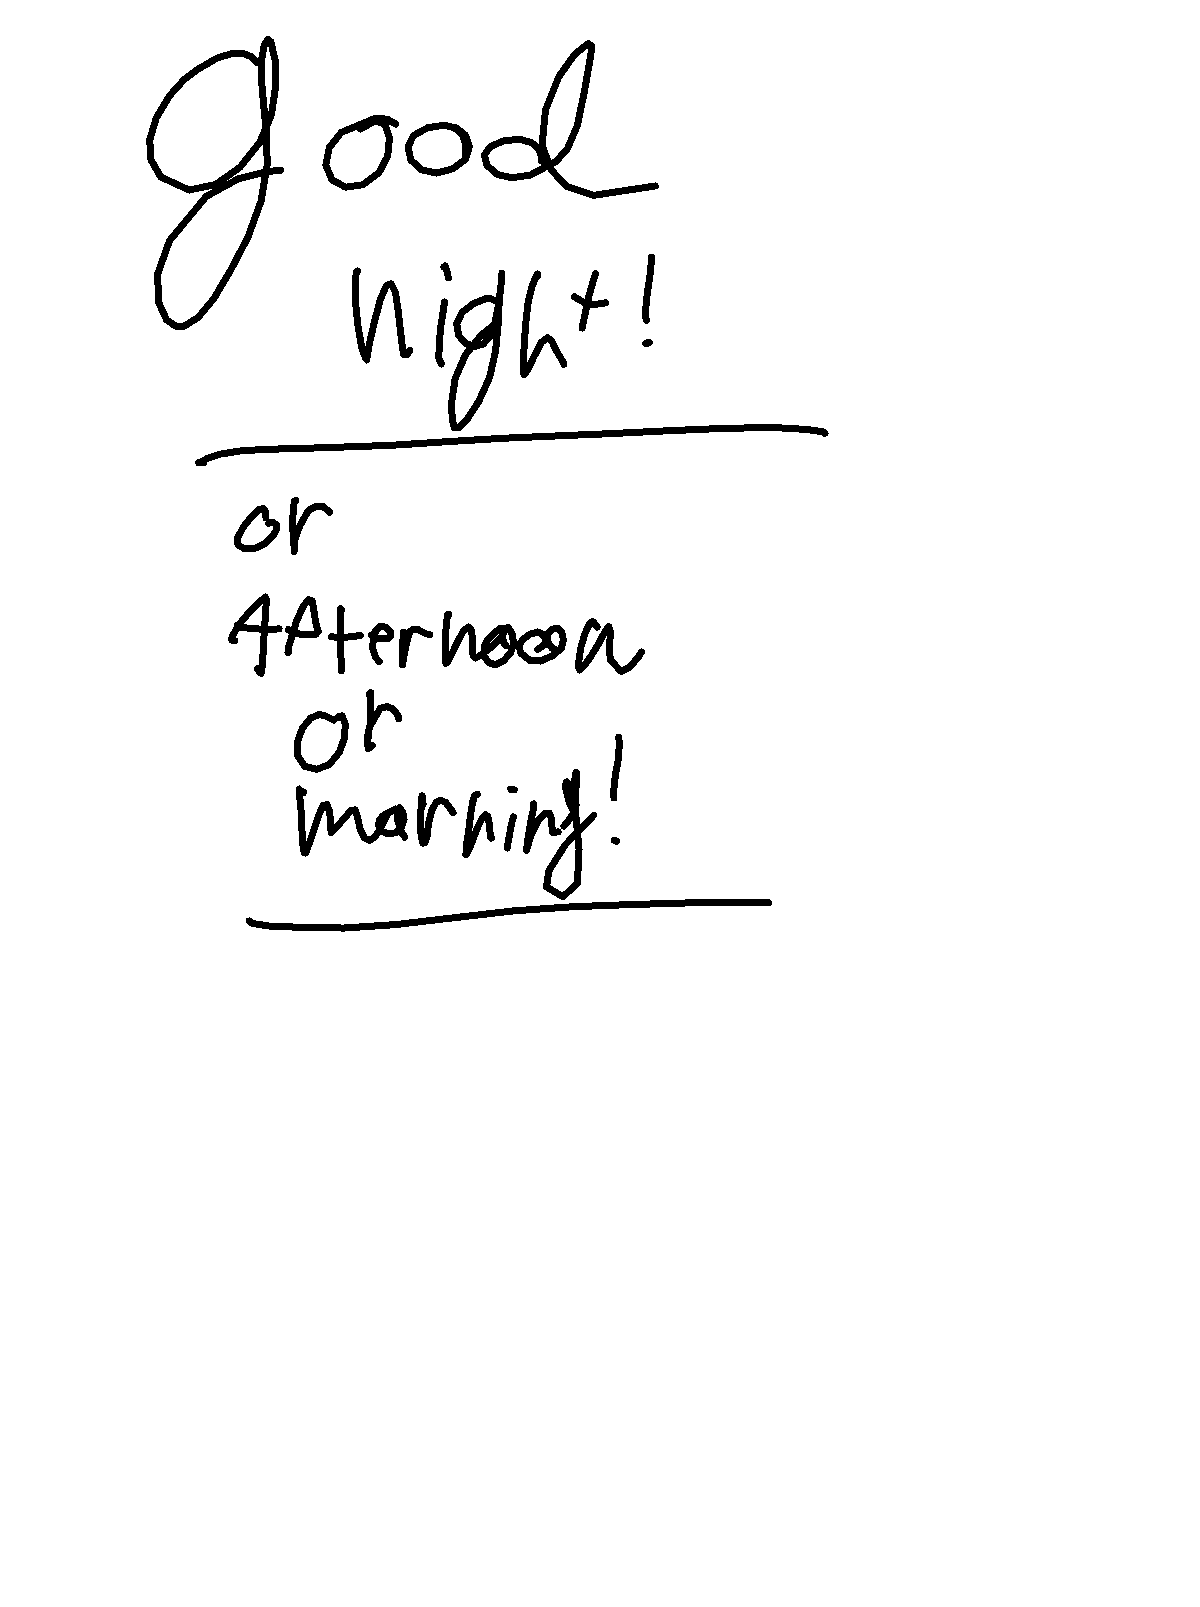 good
night!
or
Afternoon
or
morning!